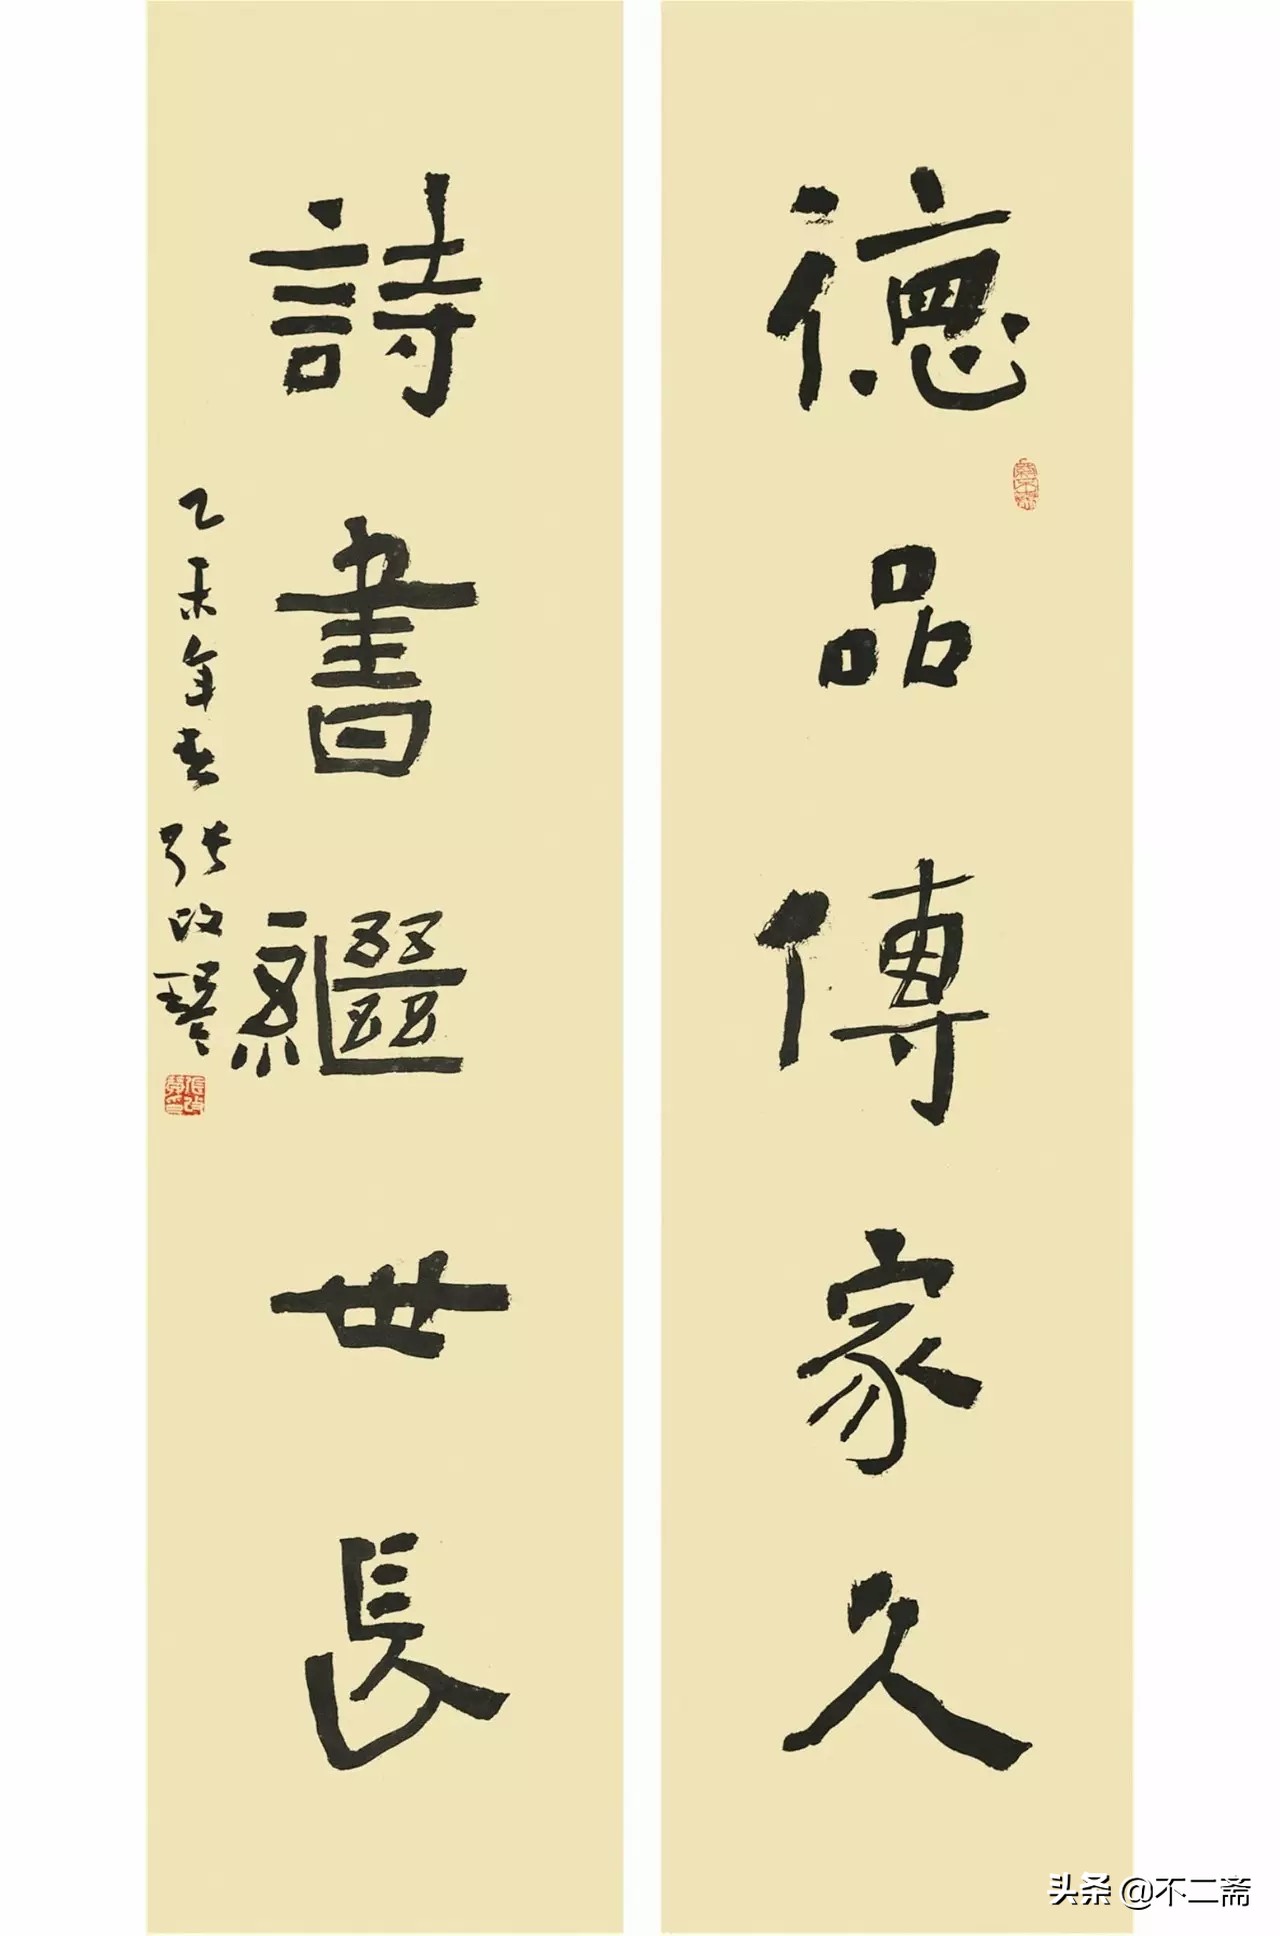 德品傳家久
詩書繼世長
乙未年春 张改琴
头条 @不二斋